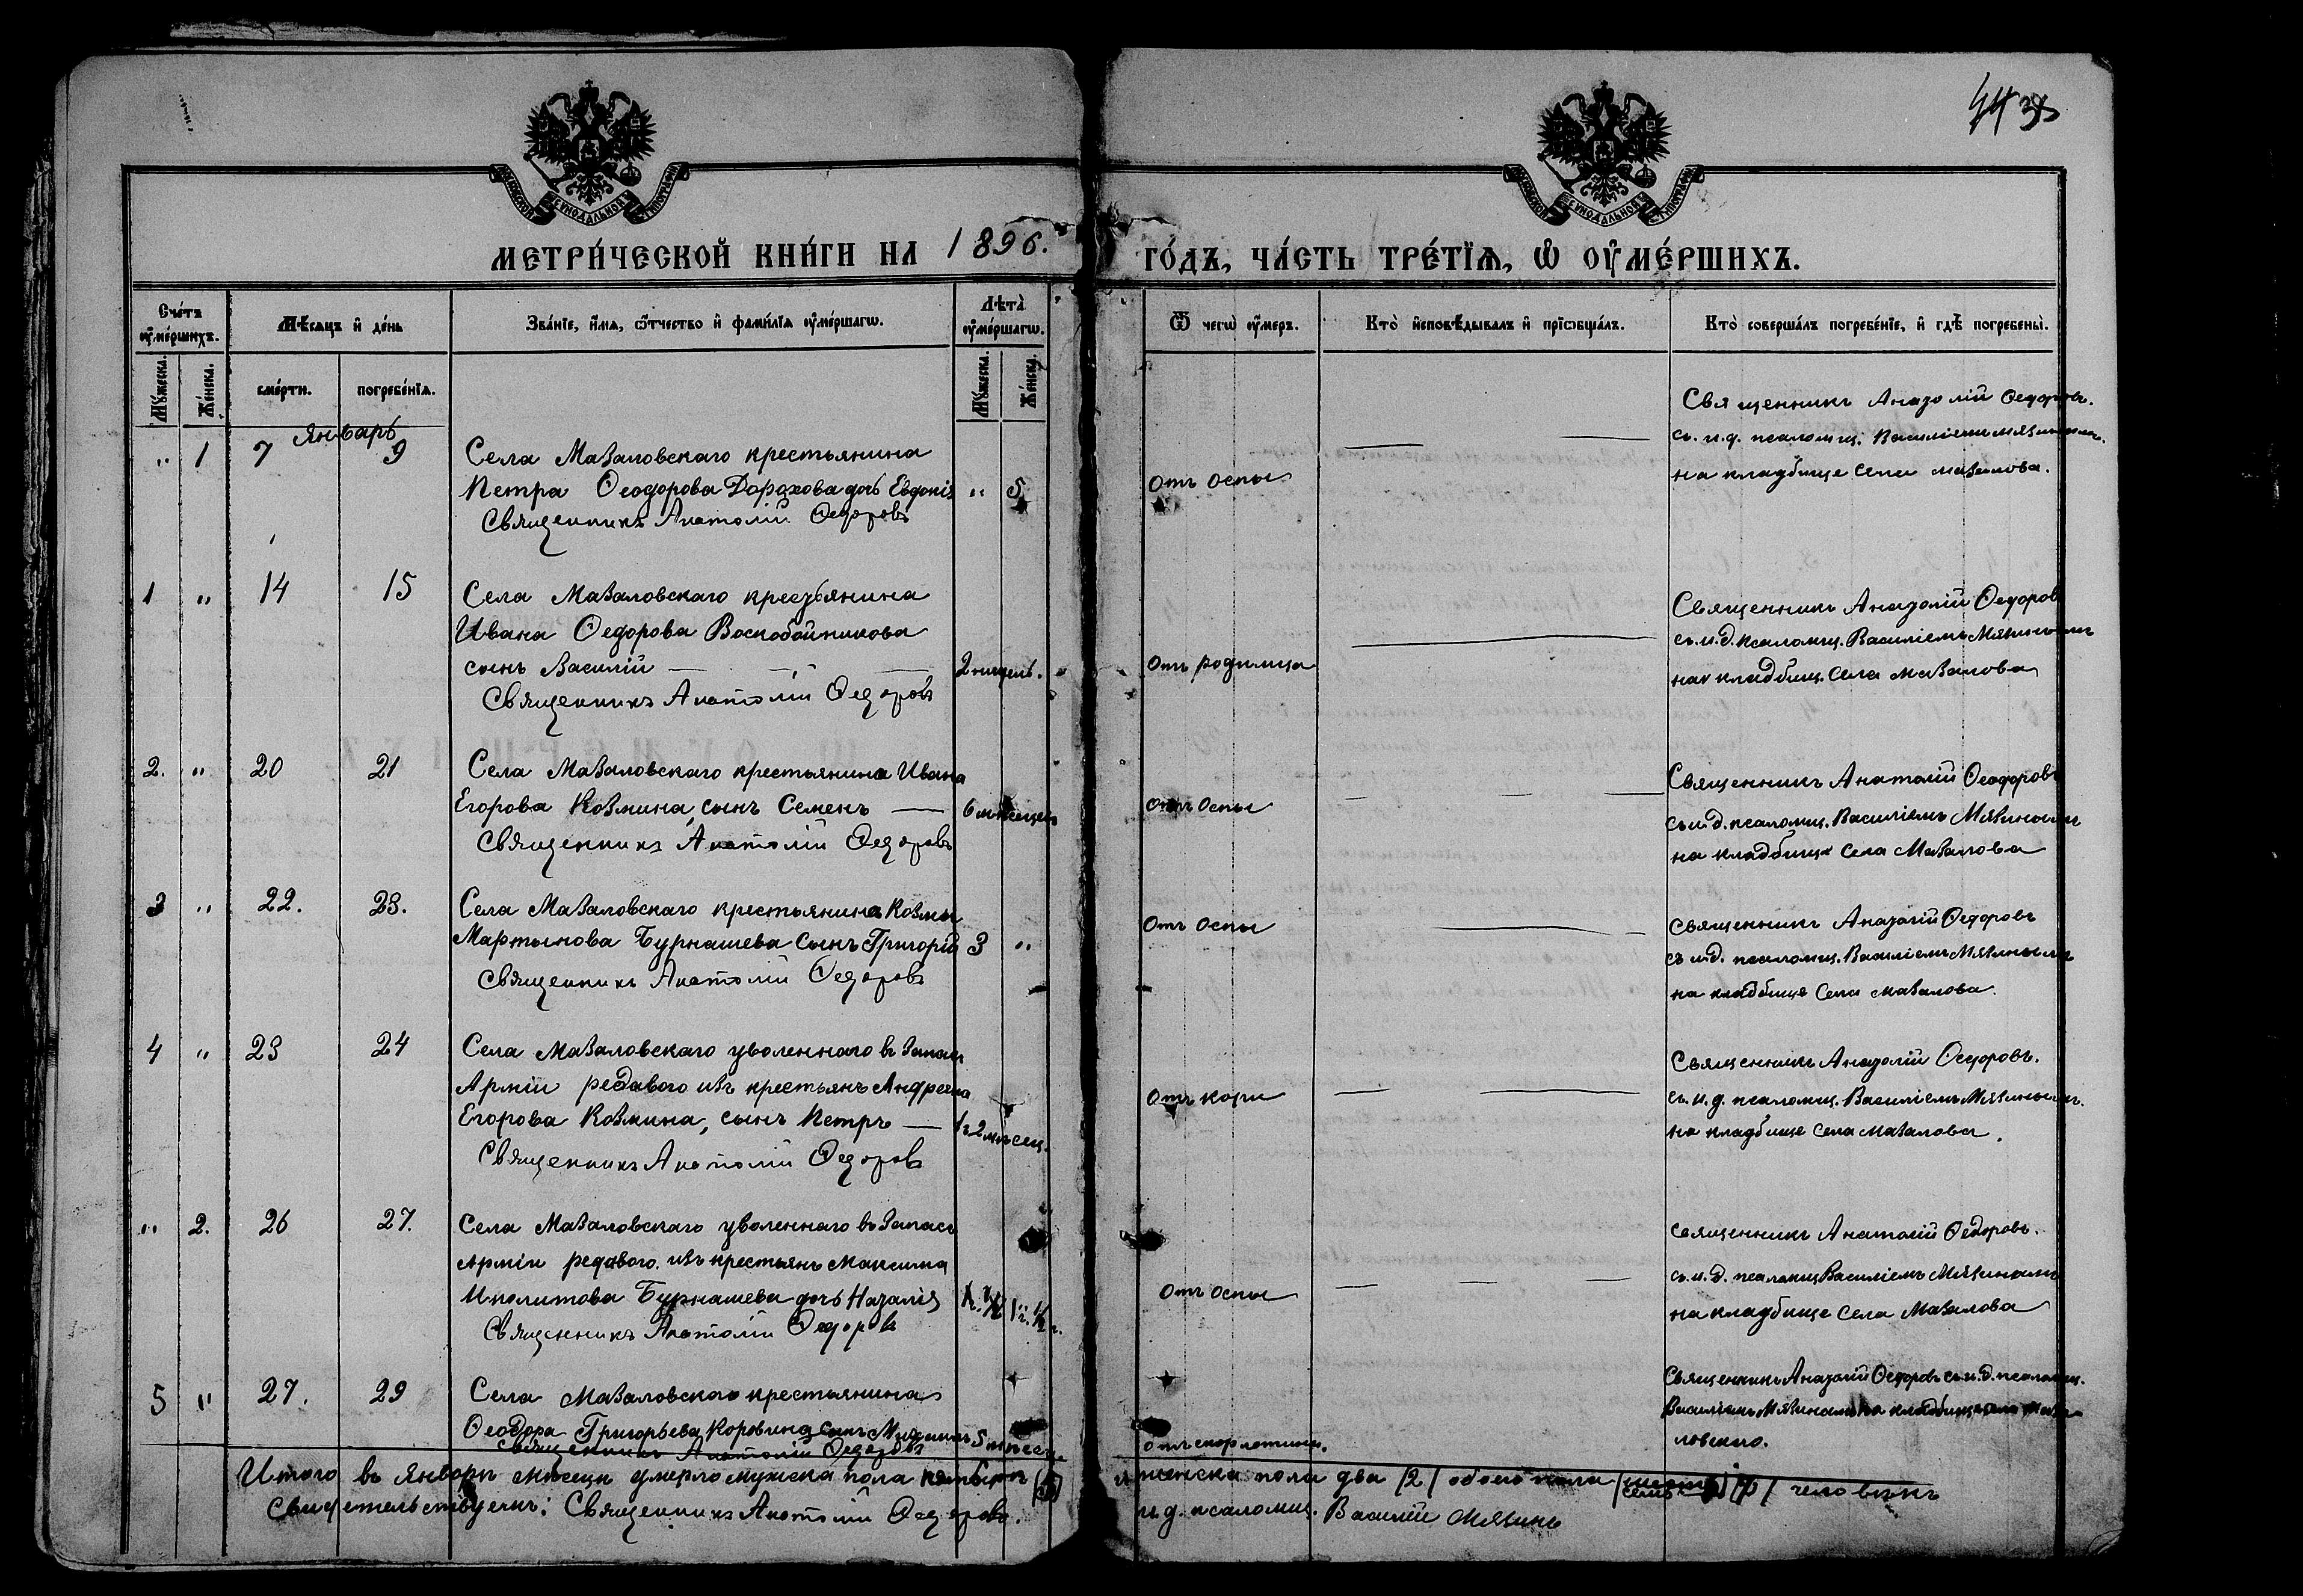 44
МОСКОВСКОЙ СѴНОДАЛЬНОЙ ТИПОГРАФІИ
МОСКОВСКОЙ СѴНОДАЛЬНОЙ ТИПОГРАФІИ
МЕТРИ́ЧЕСКОЙ КНИ́ГИ НА 1896. ГО́ДЪ, ЧА́СТЬ ТРЕ́ТЇѦ, Ѡ҆ ОУ҆МЕ́РШИХЪ.
Сче́тъ оу҆ме́ршихъ.
Мꙋ́жеска.
Же́нска.
Мѣ́сяцъ и҆ де́нь
сме́рти.
погребе́нїѧ.
Зва́нїе, и҆́мѧ, ѻ҆́тчество и҆ фами́лїѧ оу҆ме́ршагѡ.
Лѣ́та оу҆ме́ршагѡ.
Мꙋ́жеска.
Же́нска.
Ѿ чегѡ̀ оу҆́меръ.
Кто̀ и҆сповѣ́дывалъ и҆ прїѡбща́лъ.
Кто̀ соверша́лъ погребе́нїе, и҆ гдѣ̀ погребены̀.
Январь
" 1 7 9 Села Маваловскаго крестьянина
Петра Ѳеодорова Дорохова дочь Евдокія " 5
Священникъ Анатолій Ѳедоровъ
Отъ оспы
Священникъ Анатолій Ѳедоровъ.
съ и.д. псаломщ. Василіемъ Мязинымъ.
на кладбище села Мавалова.
1 " 14 15 Села Маваловскаго крестьянина
Ивана Ѳедорова Воскобойникова
сынъ Василій 2 нидель. "
Священникъ Анатолій Ѳедоровъ
Отъ родимца
Священникъ Анатолій Ѳедоровъ
съ и.д. псаломщ. Василіемъ Мязинымъ
на кладбищ. села Мавалова
2. " 20 21 Села Маваловскаго крестьянина Ивана
Егорова Козмина, сынъ Семенъ 6 мѣсецевъ
Священникъ Анатолій Ѳедоровъ
отъ оспы
Священникъ Анатолій Ѳеодоровъ
съ и.д. псаломщ. Василіемъ Мязинымъ
на кладбище села Мавалова
3 " 22. 23. Села Маваловскаго крестьянина Козмы
Мартынова Бурнашева сынъ Григорій 3 "
Священникъ Анатолій Ѳедоровъ
Отъ оспы
Священникъ Анатолій Ѳедоровъ
съ и.д. псаломщ. Василіемъ Мязинымъ
на кладбище села Мавалова.
4 " 23 24 Села Маваловскаго уволеннаго въ запасъ
Арміи редавого изъ крестьянъ Андреяна
Егорова Козмина, сынъ Петръ 1 г. 2 мѣсец.
Священникъ Анатолій Ѳедоровъ
Отъ кори
Священникъ Анатолій Ѳедоровъ.
съ и.д. псаломщ. Василіемъ Мязинымъ.
на кладбище села Мавалова.
" 2. 26 27. Села Маваловскаго уволеннаго въ запасъ
Арміи редавого изъ крестьянъ Максима
Иполитова Бурнашева дочь Наталія 1 г. ½ г.
Священникъ Анатолій Ѳедоровъ
Отъ оспы
священникъ Анатолій Ѳедоровъ.
съ и.д. псаломщ Василіемъ Мязинымъ
на кладбище села Мавалова
5 " 27. 29 Села Маваловскаго крестьянина
Ѳеодора Григорьева Коровина сынъ 5 мѣсец.
Священникъ Анатолій Ѳедоровъ
отъ скорлотины.
Священникъ Анатолій Ѳедоровъ съ и.д. псаломщ.
Василіемъ Мязинымъ на кладбище села Мава-
ловскаго.
Итого въ Январѣ мѣсецѣ умерло мужеска пола (5) и женска пола два /2/ обоего пола семь /7/ человѣкъ
Свидетельствуемъ: Священникъ Анатолій Ѳедоровъ.
и.д. псаломщ. Василій Мязинъ